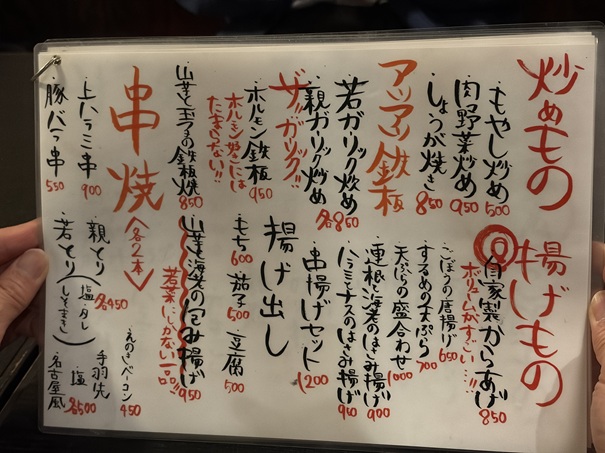 炒めもの
・もやし炒め 500
・肉野菜炒め 950
・しょうが焼き 850
アツアツ鉄板
・若ガリック炒め
・親ガリック炒め 各850
ザ・ガリック!!
・ホルモン鉄板 950
ホルモン好きには
たまらない!!
・山芋と玉子の鉄板焼 850
串焼
<各2本>
・上ハラミ串 900
・豚バラ串 550
揚げもの
・自家製からあげ 850
ボリュームがすごい…!!
・ごぼうの唐揚げ 650
・するめの天ぷら 700
・天ぷらの盛合わせ 1000
・蓮根と海老のはさみ揚げ 900
・ハラミとナスのはさみ揚げ 950
・串揚げセット 1200
揚げ出し
・もち 600
・茄子 500
・豆腐 500
・山芋と海老の包み揚げ 950
若菜にしかない一品!!
・えのきベーコン 450
・親とり
・若とり(塩・タレ しそまき) 各450
・手羽先 塩 名古屋風 各500